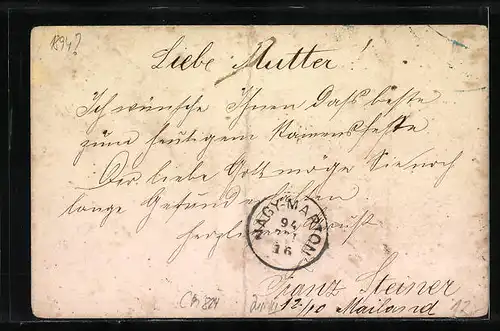 1894?
Liebe Mutter!
Ich wünsche Ihnen daß beste
zum heutigem Namensfeste
Der liebe Gott möge Sie noch
lange Gesund erhalten
herzlichen
NAGY-MARTON
94
16
Franz Steiner
12/10 Mailand
12